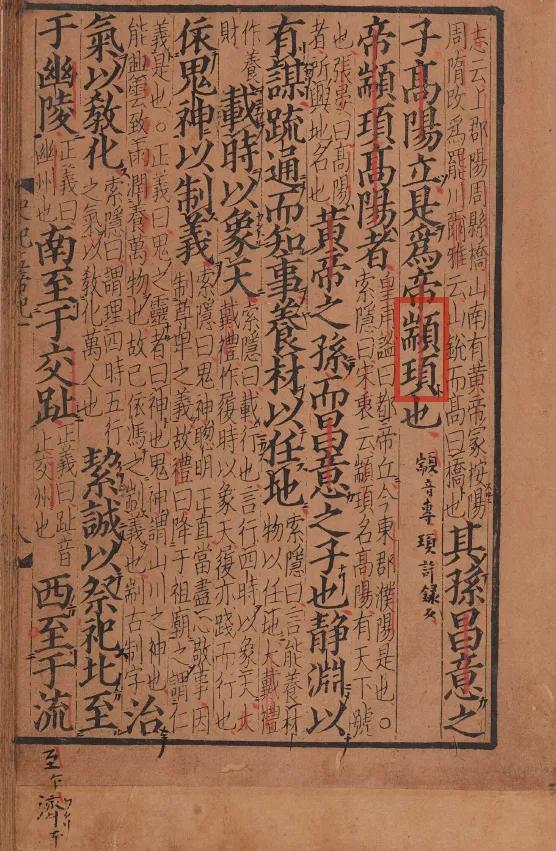 志云上郡陽周縣橋山南有黃帝冢按陽
周隋改爲羅川爾雅云山銳而高曰橋也
其孫昌意之
子高陽立是爲帝顓頊也
顓音專頊許録反
帝顓頊高陽者
皇甫謐曰都帝丘今東郡濮陽是也。
索隱曰宋衷云顓頊名高陽有天下號
也張晏曰高陽
者所興地名也
黃帝之孫而昌意之子也靜淵以
有謀疏通而知事養材以任地
索隱曰言能養材
物以任地大戴禮
作養
財
載時以象天
索隱曰載行也言行四時以象天大
戴禮作履時以象天履亦踐而行也
依鬼神以制義
索隱曰鬼神聰明正直當盡心敬事因
制尊卑之義故禮曰降于祖廟之謂仁
義是也。正義曰鬼之靈者曰神也鬼神謂山川之神也
能興雲致雨潤養萬物也故已依馮之剬義也剬古制字
治
氣以敎化
索隱曰謂理四時五行
之氣以敎化萬人也
絜誠以祭祀北至
于幽陵
正義曰
幽州也
南至于交趾
正義曰趾音
止交州也
西至于流